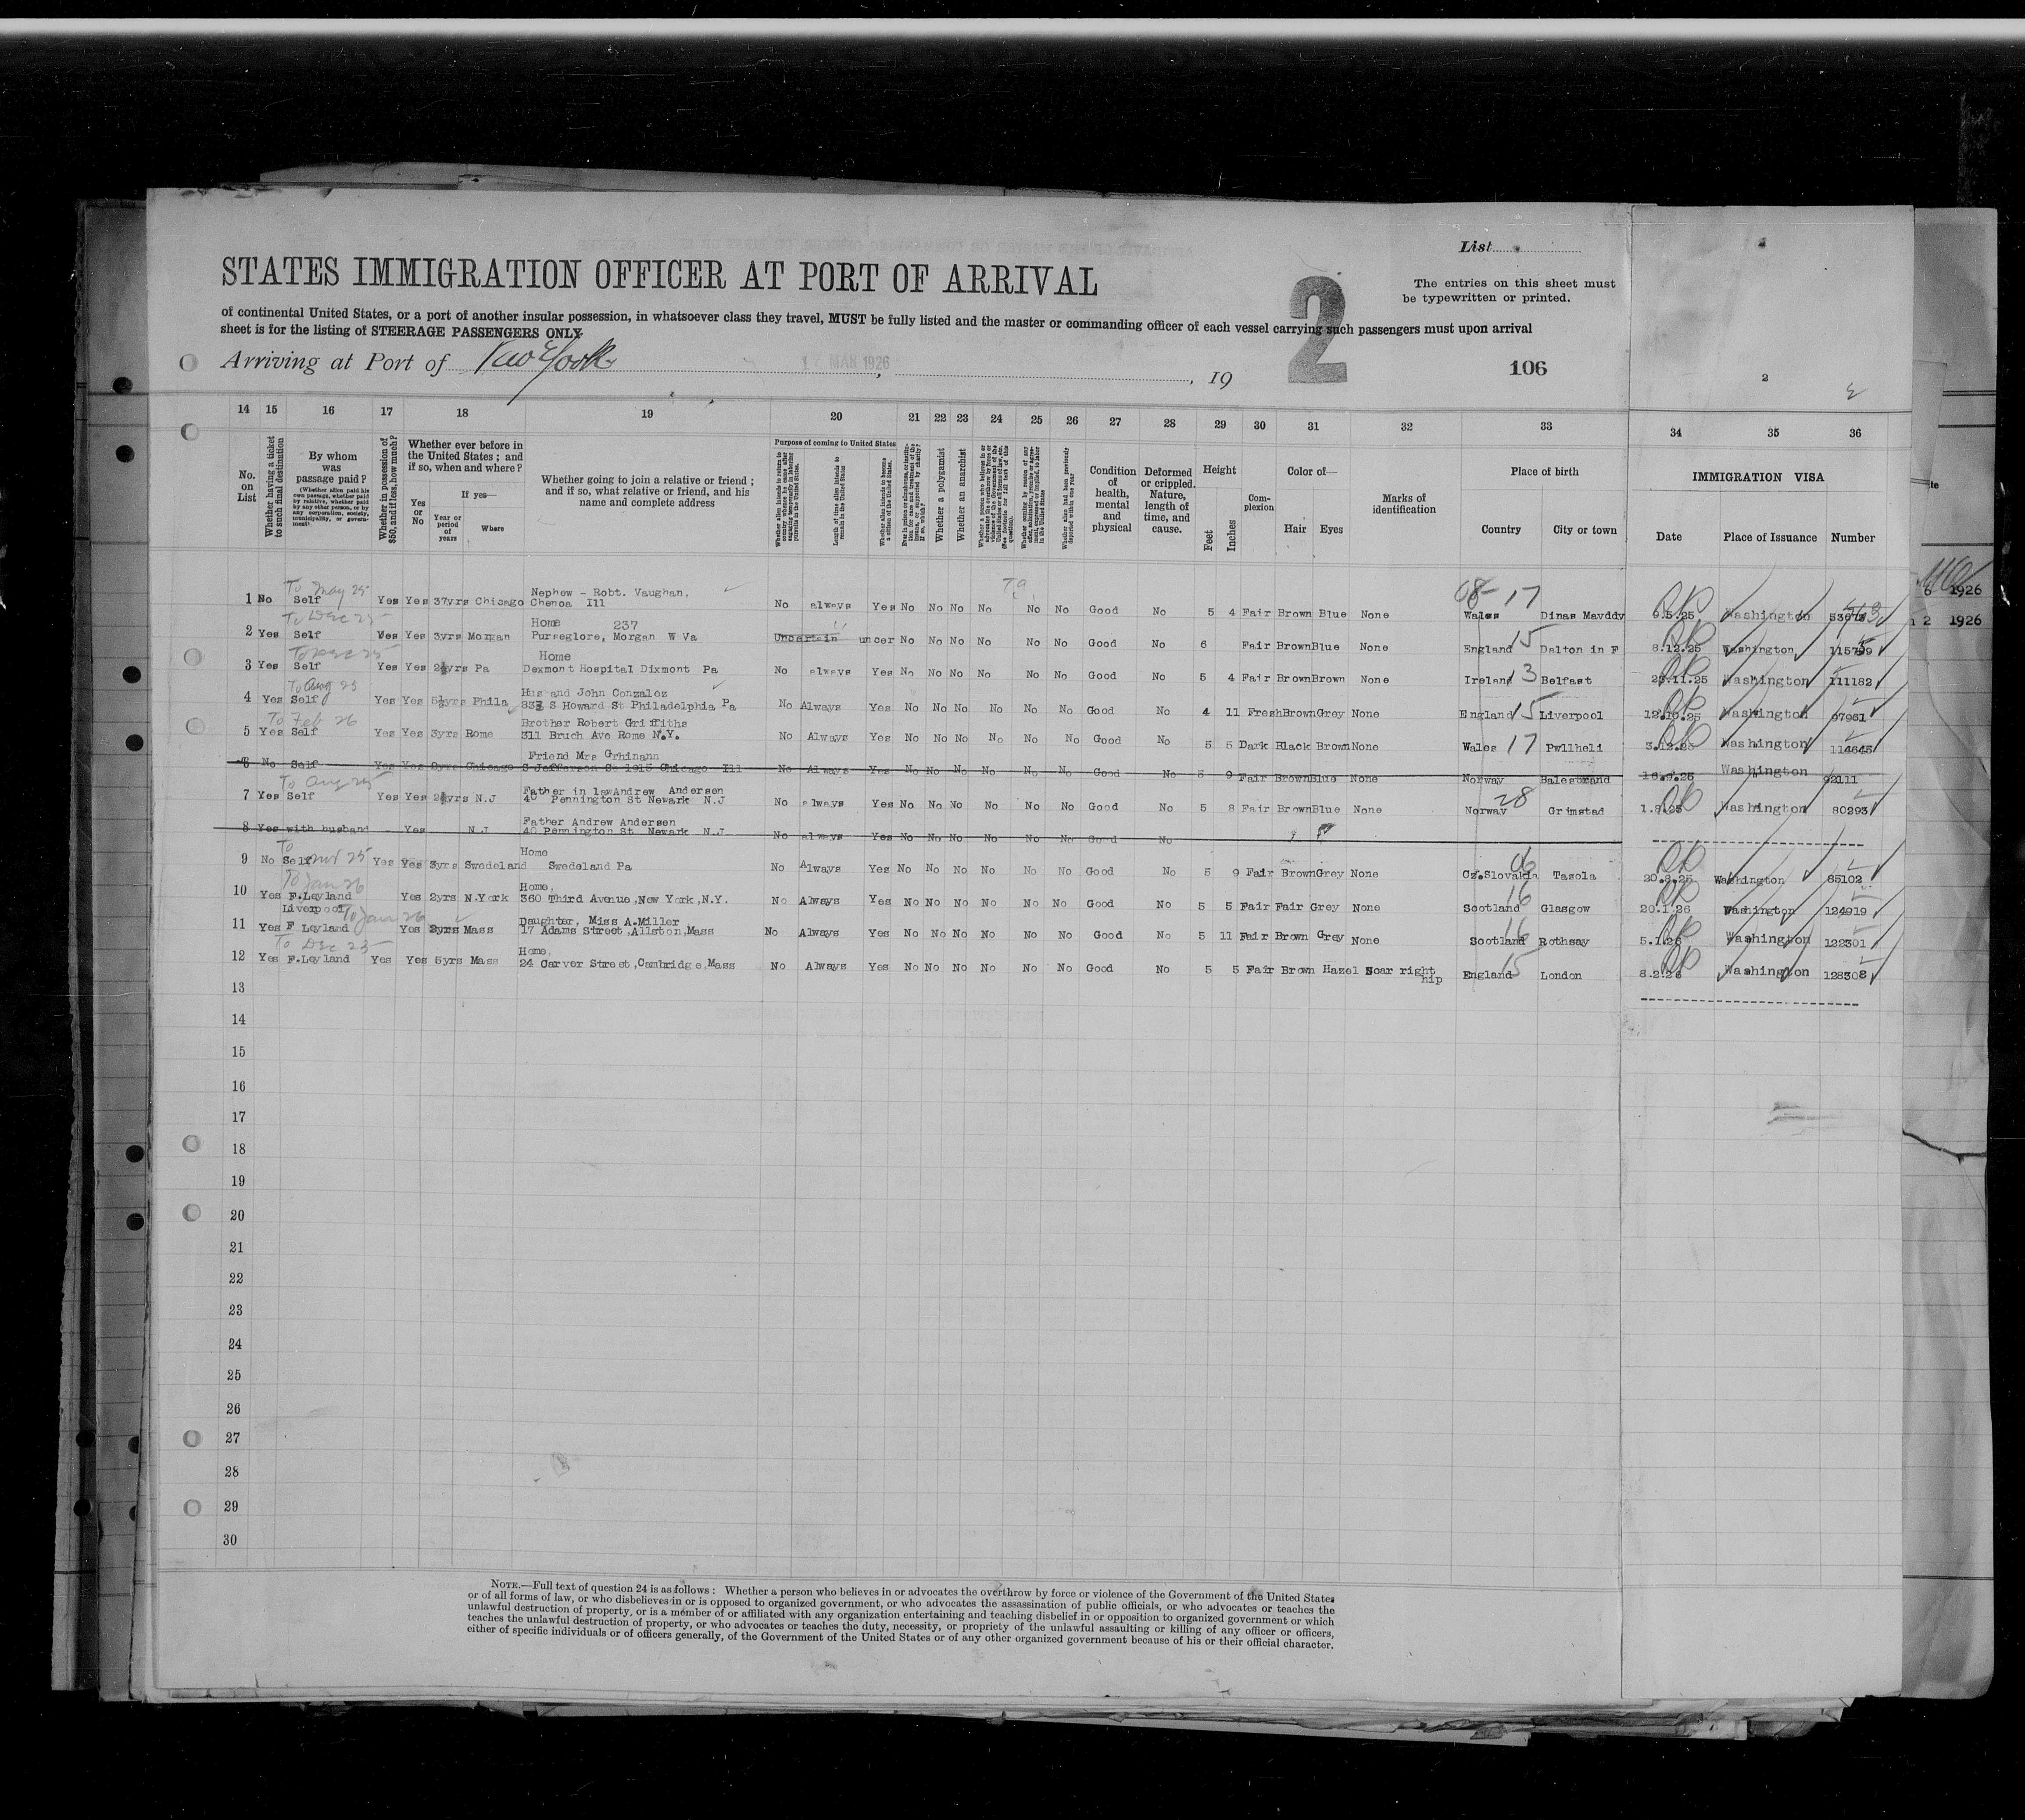 List
STATES IMMIGRATION OFFICER AT PORT OF ARRIVAL
2
The entries on this sheet must
be typewritten or printed.
of continental United States, or a port of another insular possession, in whatsoever class they travel, MUST be fully listed and the master or commanding officer of each vessel carrying such passengers must upon arrival
sheet is for the listing of STEERAGE PASSENGERS ONLY
Arriving at Port of New York 17 MAR 1926, 19
106
2
14 15 16 17 18 19 20 21 22 23 24 25 26 27 28 29 30 31 32 33 34 35 36
No. on List
Whether having a ticket to such final destination
By whom was passage paid?
(Whether alien paid his own passage, whether paid by relative, whether paid by any other person, or by any corporation, society, municipality, or government)
Whether in possession of $50, and if less, how much?
Whether ever before in the United States; and if so, when and where?
Yes or No
If yes—
Year or period of years
Where
Whether going to join a relative or friend; and if so, what relative or friend, and his name and complete address
Purpose of coming to United States
Length of time alien intends to remain in the United States
Whether alien intends to become a citizen of the United States
Whether a polygamist
Whether an anarchist
Condition of health, mental and physical
Deformed or crippled. Nature, length of time, and cause.
Height
Feet
Inches
Complexion
Color of—
Hair
Eyes
Marks of identification
Place of birth
Country
City or town
IMMIGRATION VISA
Date
Place of Issuance
Number
To May 25 Nephew - Robt. Vaughan, 68-17
1 No Self Yes Yes 37yrs Chicago Chenoa Ill No always Yes No No No No No No Good No 5 4 Fair Brown Blue None Wales Dinas Mavddy 9.5.25 Washington
To Dec 25 Home 237
2 Yes Self Yes Yes 3yrs Morgan Purseglore, Morgan W Va Uncertain uncer No No No No No No Good No 6 Fair Brown Blue None England 15 Dalton in F 8.12.25 Washington
Home
3 Yes Self Yes Yes 2½yrs Pa Dexmont Hospital Dixmont Pa No always Yes No No No No No No Good No 5 4 Fair Brown Brown None Ireland 3 Belfast 25.11.25 Washington 111182
To Aug 25 Husband John Conzalez
4 Yes Self Yes Yes 5½yrs Phila S Howard St Philadelphia Pa No Always Yes No No No No No No Good No 4 11 Fresh Brown Grey None England 15 Liverpool 12.10.25 Washington 97961
To Feb 26 Brother Robert Griffiths
5 Yes Self Yes Yes 3yrs Rome 311 Bruch Ave Rome N.Y. No Always Yes No No No No No No Good No 5 5 Dark Black Brown None Wales 17 Pwllheli Washington 114645
Friend Mrs Grhinann
6 No Self Yes Yes Chicago S Jefferson St 1915 Chicago Ill No Always Yes No No No No No No Good No 5 9 Fair Brown Blue None Norway Balestrand 16.9.25 Washington 92111
To Aug 25 Father in law Andrew Andersen
7 Yes Self Yes Yes 2½yrs N.J 40 Pennington St Newark N.J No always Yes No No No No No No Good No 5 8 Fair Brown Blue None Norway 28 Grimstad 1.9.25 Washington 80293
Father Andrew Andersen
8 Yes with husband Yes N.J 40 Pennington St Newark N.J No always Yes No No No No No No Good No
To Home
9 No Self Yes Yes 3yrs Swedeland Swedeland Pa No Always Yes No No No No No No Good No 5 9 Fair Brown Grey None Cz.Slovakia Tasola 20.8.25 Washington 85102
To Jan 26 Home,
10 Yes F.Leyland Yes 2yrs N.York 360 Third Avenue, New York, N.Y. No Always Yes No No No No No No Good No 5 5 Fair Fair Grey None Scotland 16 Glasgow 20.1.26 Washington 124919
Liverpool To Jan 26 Daughter, Miss A.Miller
11 Yes F Leyland Yes 3yrs Mass 17 Adams Street, Allston, Mass No Always Yes No No No No No No Good No 5 11 Fair Brown Grey None Scotland 16 Rothsay 5.1.26 Washington 122301
To Dec 25 Home,
12 Yes F.Leyland Yes Yes 5yrs Mass 24 Carver Street, Cambridge, Mass No Always Yes No No No No No No Good No 5 5 Fair Brown Hazel Scar right hip England 15 London 8.2.26 Washington 128308
13
14
15
16
17
18
19
20
21
22
23
24
25
26
27
28
29
30
6 1926
2 1926
NOTE.—Full text of question 24 is as follows: Whether a person who believes in or advocates the overthrow by force or violence of the Government of the United States
or of all forms of law, or who disbelieves in or is opposed to organized government, or who advocates the assassination of public officials, or who advocates or teaches the
unlawful destruction of property, or is a member of or affiliated with any organization entertaining and teaching disbelief in or opposition to organized government or which
teaches the unlawful destruction of property, or who advocates or teaches the duty, necessity, or propriety of the unlawful assaulting or killing of any officer or officers,
either of specific individuals or of officers generally, of the Government of the United States or of any other organized government because of his or their official character.